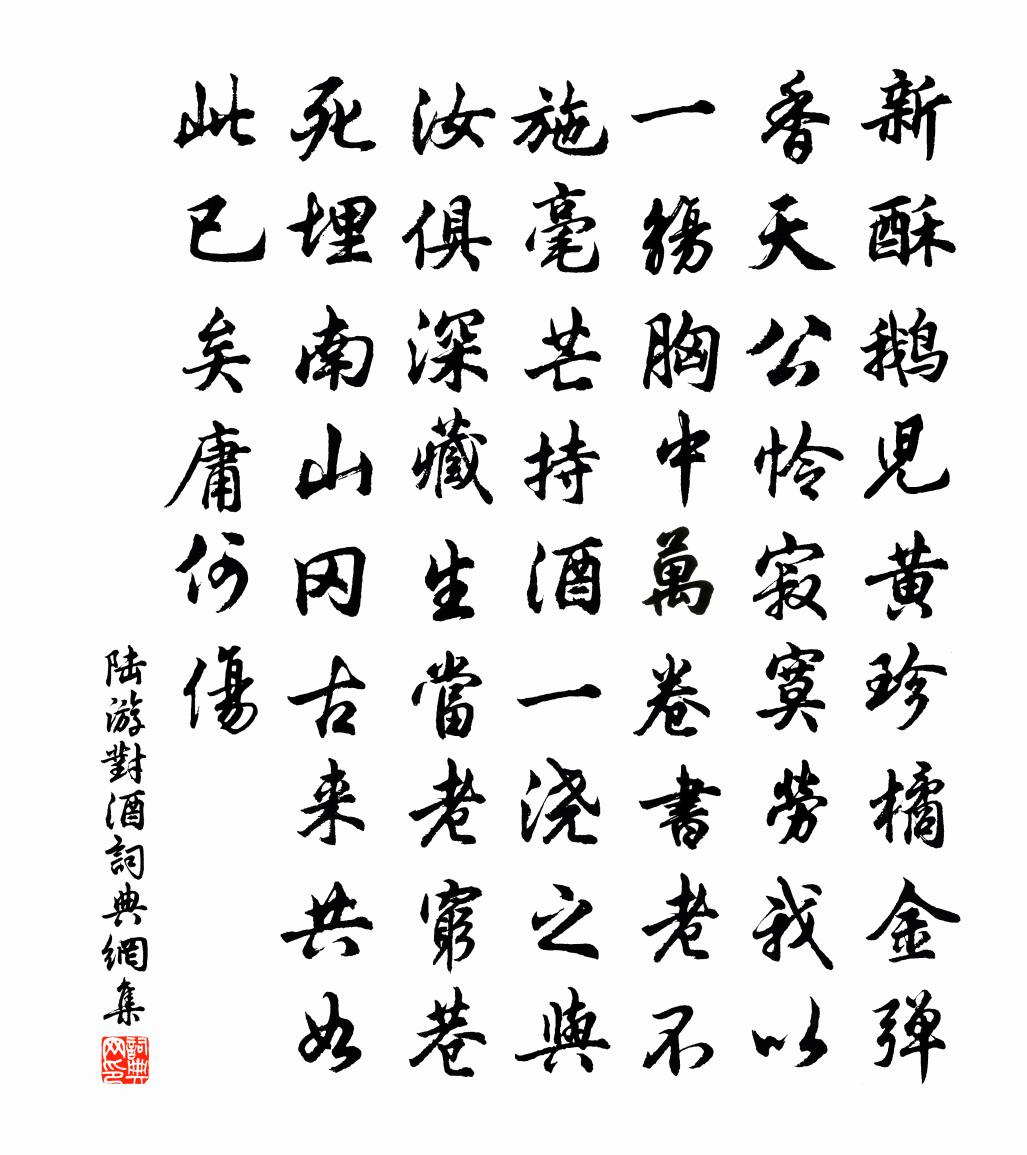 新酥鵝児黄珍橘金弹
香天公怜寂寞勞我以
一觞胸中萬卷書老不
施毫芒持酒一浇之與
汝俱深藏生當老窮巷
死埋南山冈古来共如
此已矣庸何傷
陆游對酒詞典網集
詞典网印